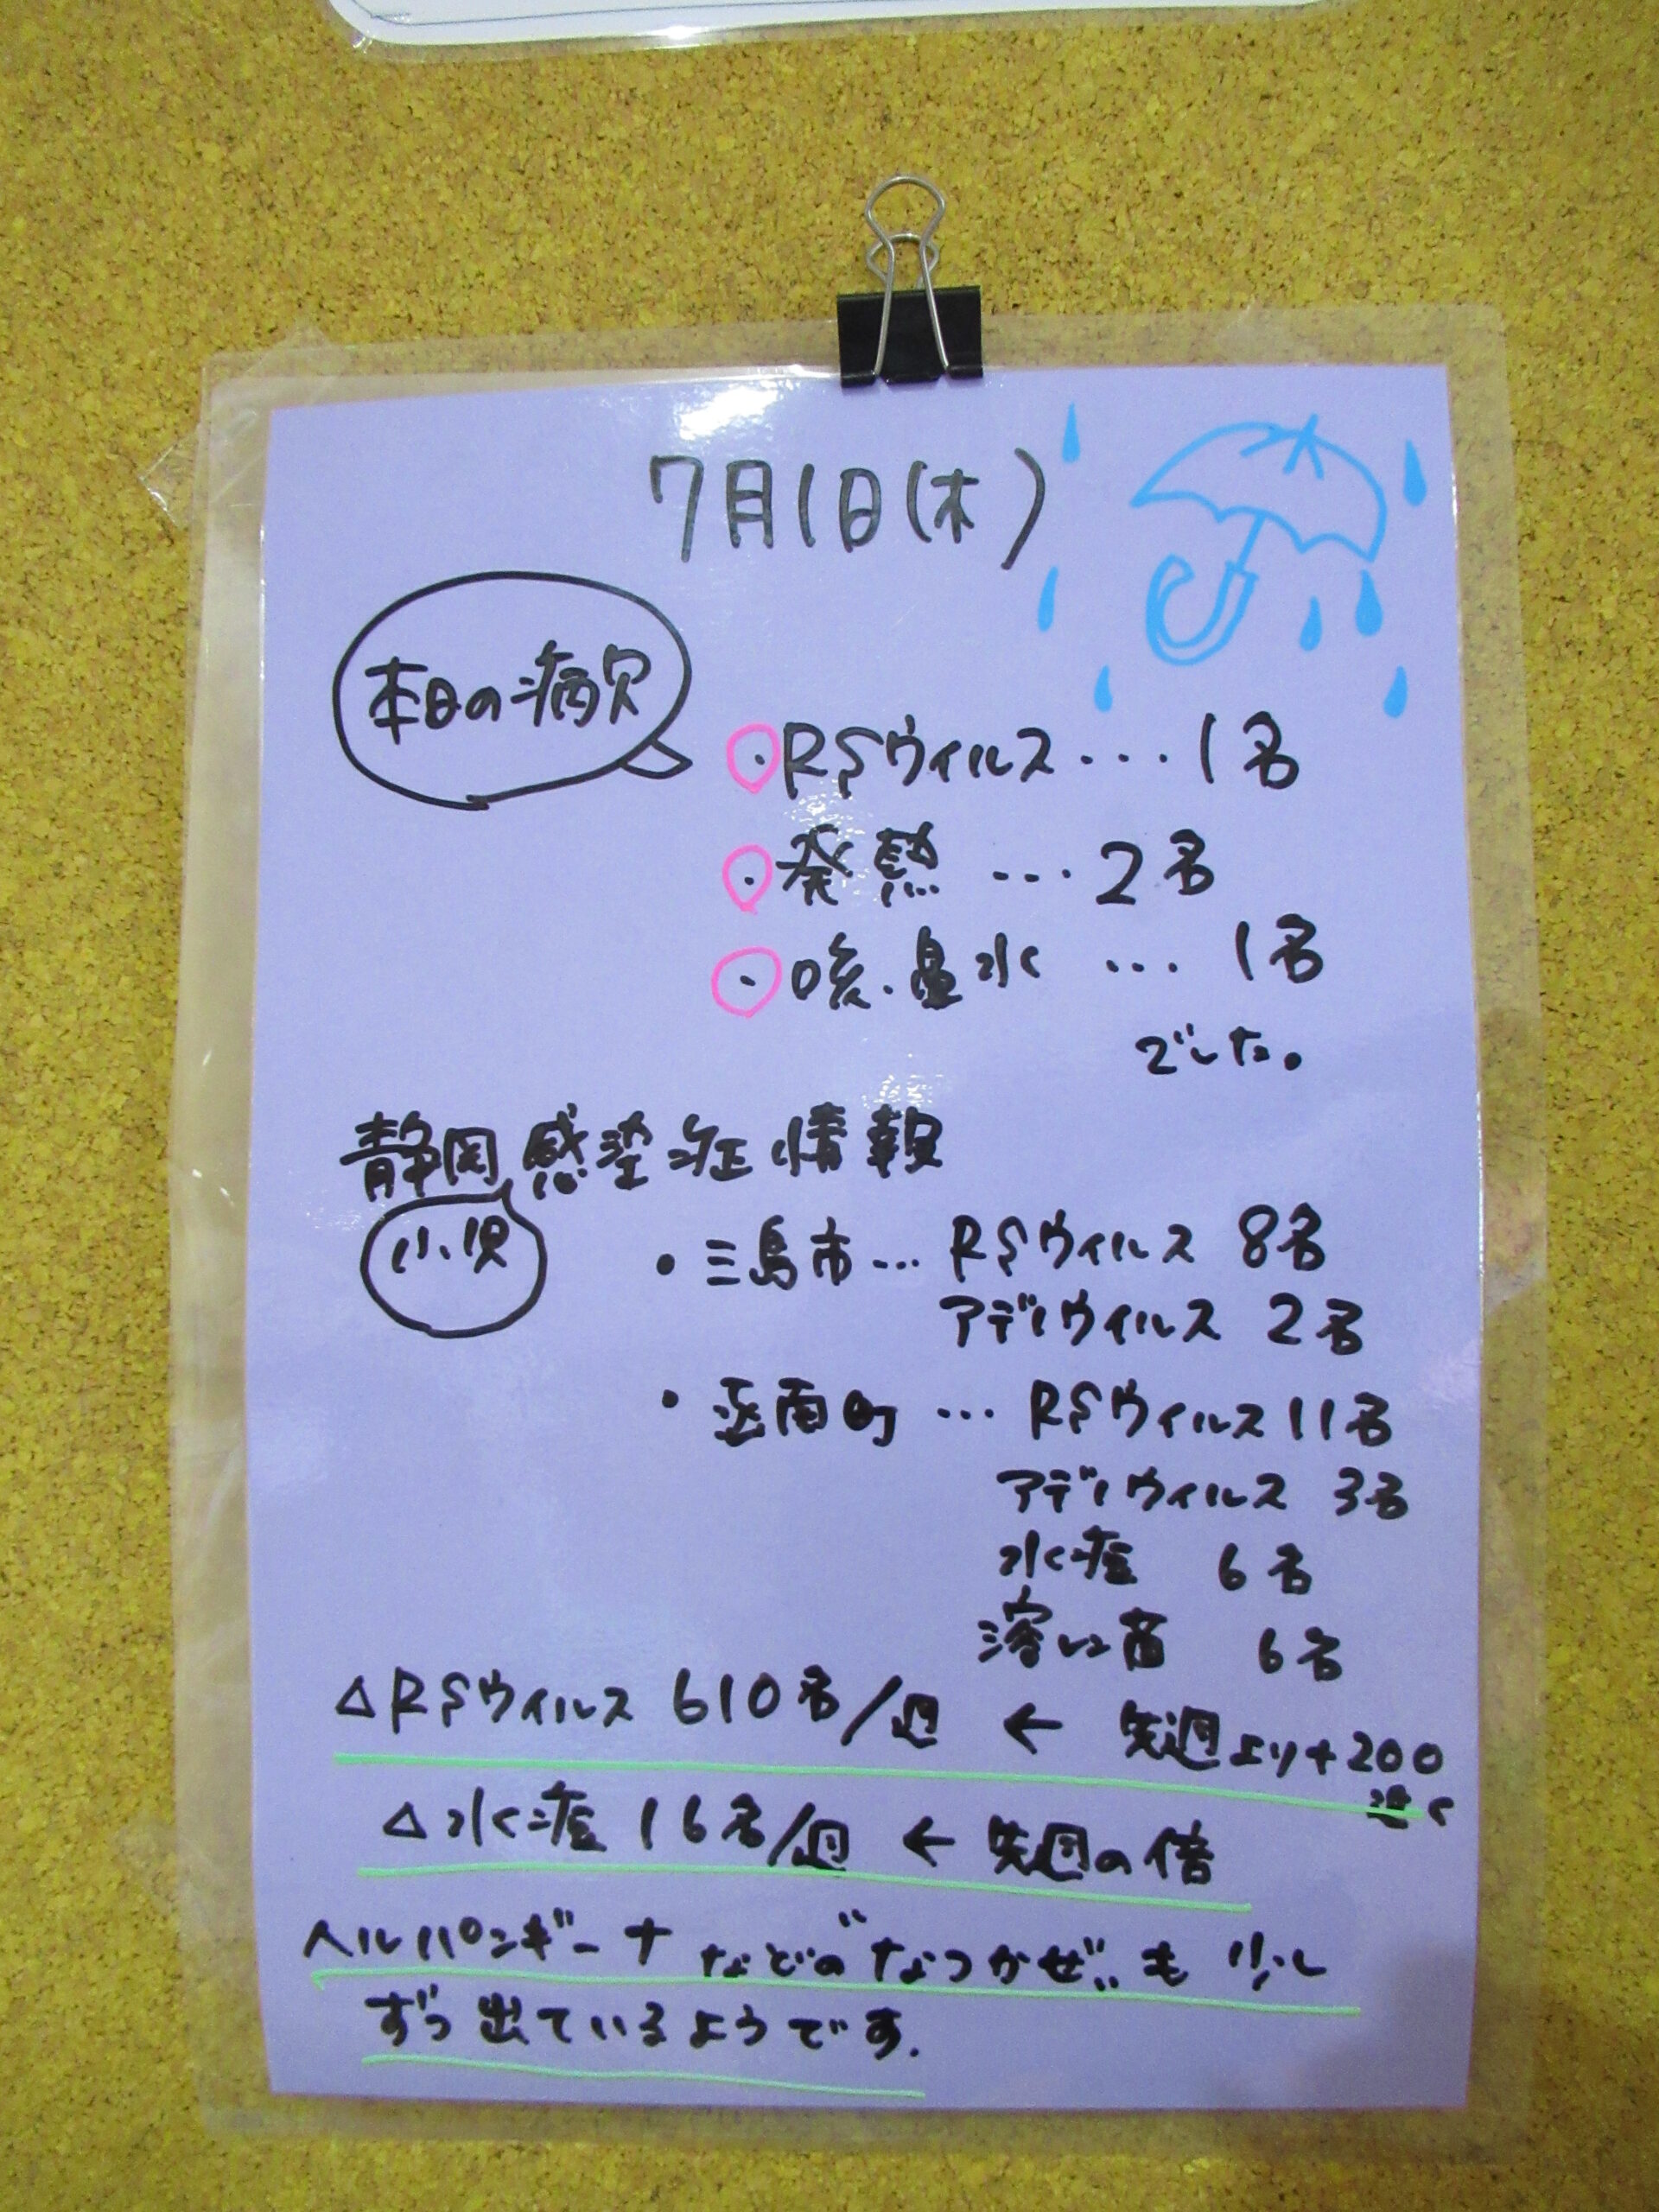 7月1日(木)
本日の病欠
・RSウィルス・・・1名
・発熱 ・・・2名
・咳・鼻水 ・・・1名
でした。
静岡感染症情報
小児
・三島市… RSウィルス 8名
アデノウィルス 2名
・函南町 … RSウィルス 11名
アデノウィルス 3名
水痘 6名
溶レン菌 6名
△RSウィルス 610名/週 ← 先週より+200
近く
△水痘 16名/週 ← 先週の倍
ヘルパンギーナ などの"なつかぜ"も 少し
ずつ出ているようです.